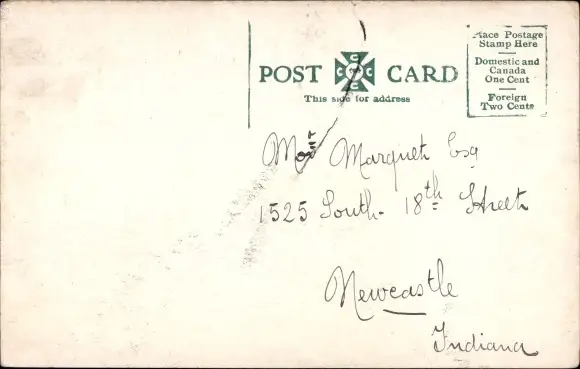 POST CARD
This side for address
Place Postage
Stamp Here
Domestic and
Canada
One Cent
Foreign
Two Cents
Marquet Esq
1525 South 18th Street
Newcastle
Indiana